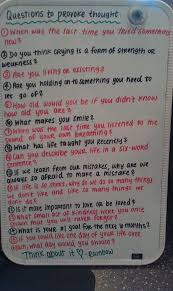 Questions to provoke thought:
① When was the last time you tried something
new?
② Do you think crying is a form of strength or
weakness?
③ Are you living or existing?
④ Are you holding on to something you need to
let go of?
⑤ How old would you be if you didn't know
how old you are?
⑥ What makes you smile?
⑦ When was the last time you listened to the
sound of your own breathing?
⑧ What has life taught you recently?
⑨ Can you describe your life in a six-word
sentence?
⑩ If we learn from our mistakes, why are we
always so afraid to make a mistake?
⑪ If life is so short, why do we do so many things
we don't like and like so many things we
don't do?
⑫ Is it more important to love or be loved?
⑬ What act of kindness were you once
shown that you will never forget?
⑭ What is your #1 goal for the next 6 months?
⑮ If you could live one day of your life over
again what day would you choose?
Think about it ♡ -Rainbow